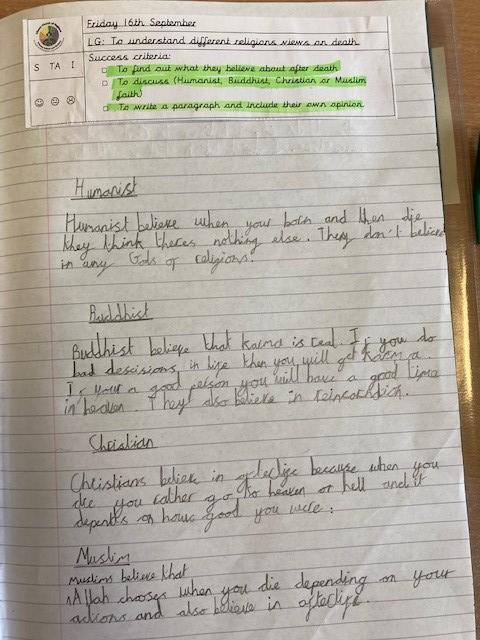 Friday 16th September
LG: To understand different religions views on death
Success criteria:
S TA I
To find out what they believe about after death
To discuss (Humanist, Buddhist, Christian or Muslim
faith)
To write a paragraph and include their own opinion
Humanist
Humanist believe when your born and then die
they think theres nothing else. They don't believe
in any Gods of religions.
Buddhist
Buddhist believe that karma is real. If you do
bad descisions in life then you will get karma.
If your a good person you will have a good time
in heaven. They also believe in
Christian
Christians believe in afterlife because when you
die you rather go to heaven or hell and it
depends on hows good you were.
Muslim
Muslims believe that
Allah chooses when you die depending on your
actions and also believe in afterlife.